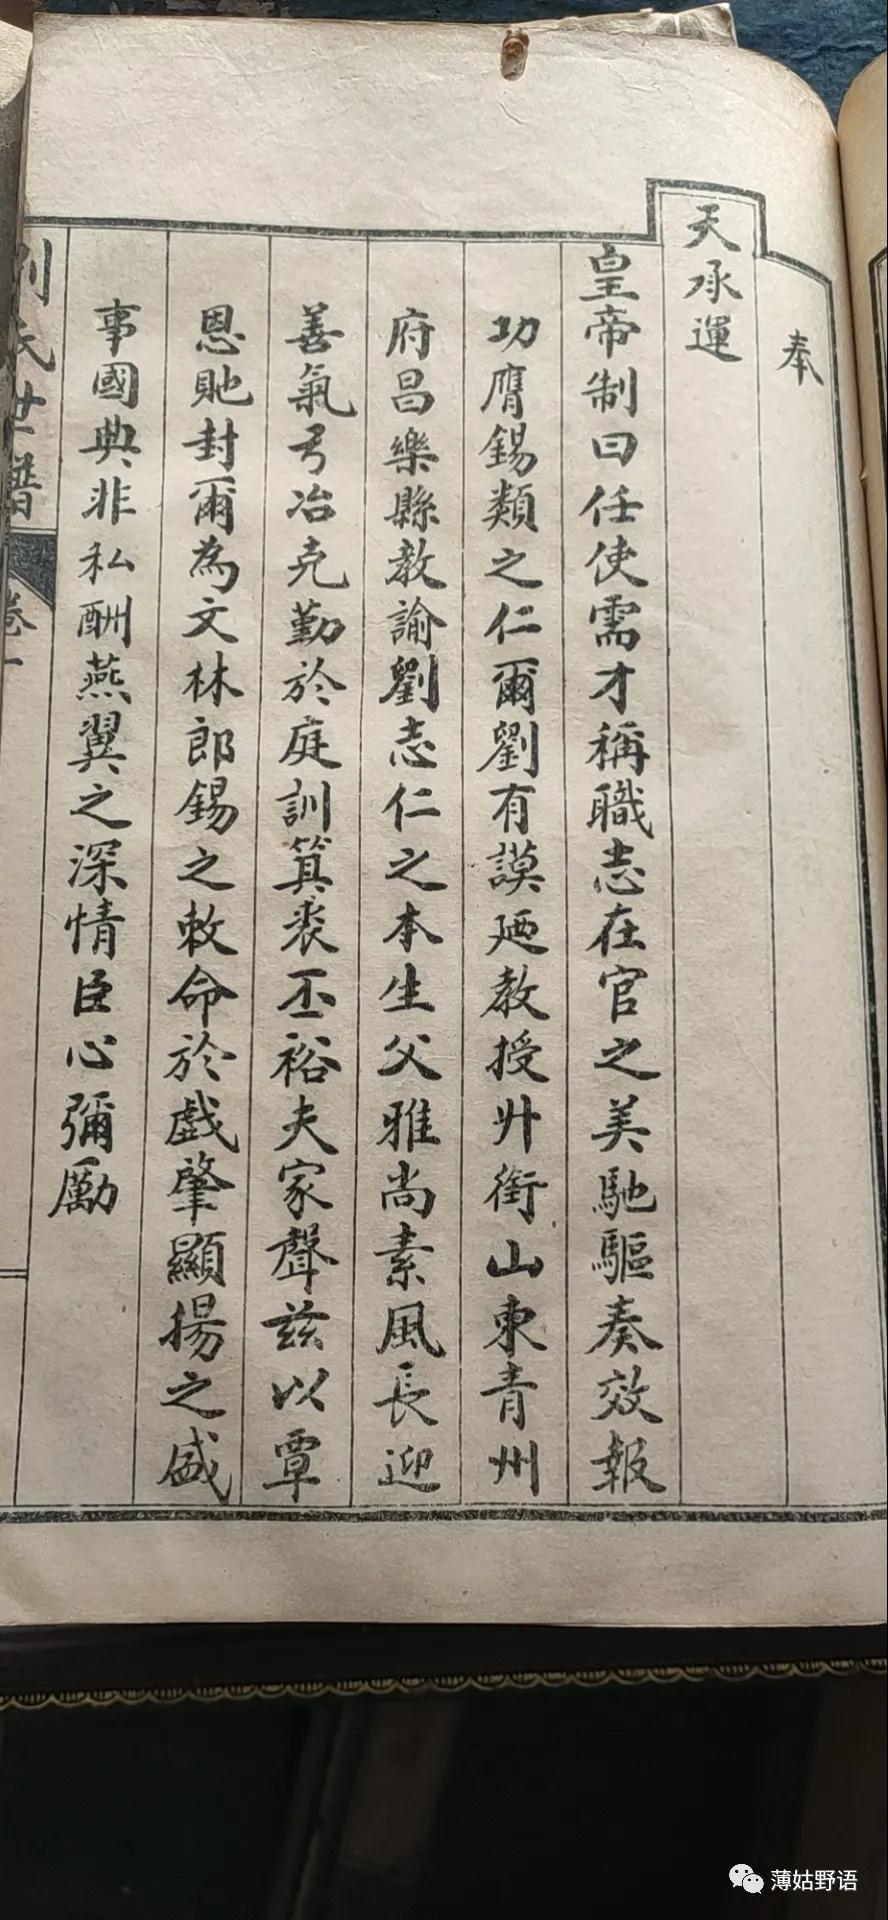 奉
天承運
皇帝制曰任使需才稱職志在官之美馳驅奏效報
功膺錫類之仁爾劉有謨廼教授廾銜山東青州
府昌樂縣教諭劉志仁之本生父雅尚素風長迎
善氣弓冶克勤於庭訓箕裘丕裕夫家聲茲以覃
恩貤封爾為文林郎錫之敕命於戲肇顯揚之盛
事國典非私酬燕翼之深情臣心彌勵
劉氏世譜
卷一
薄姑野语